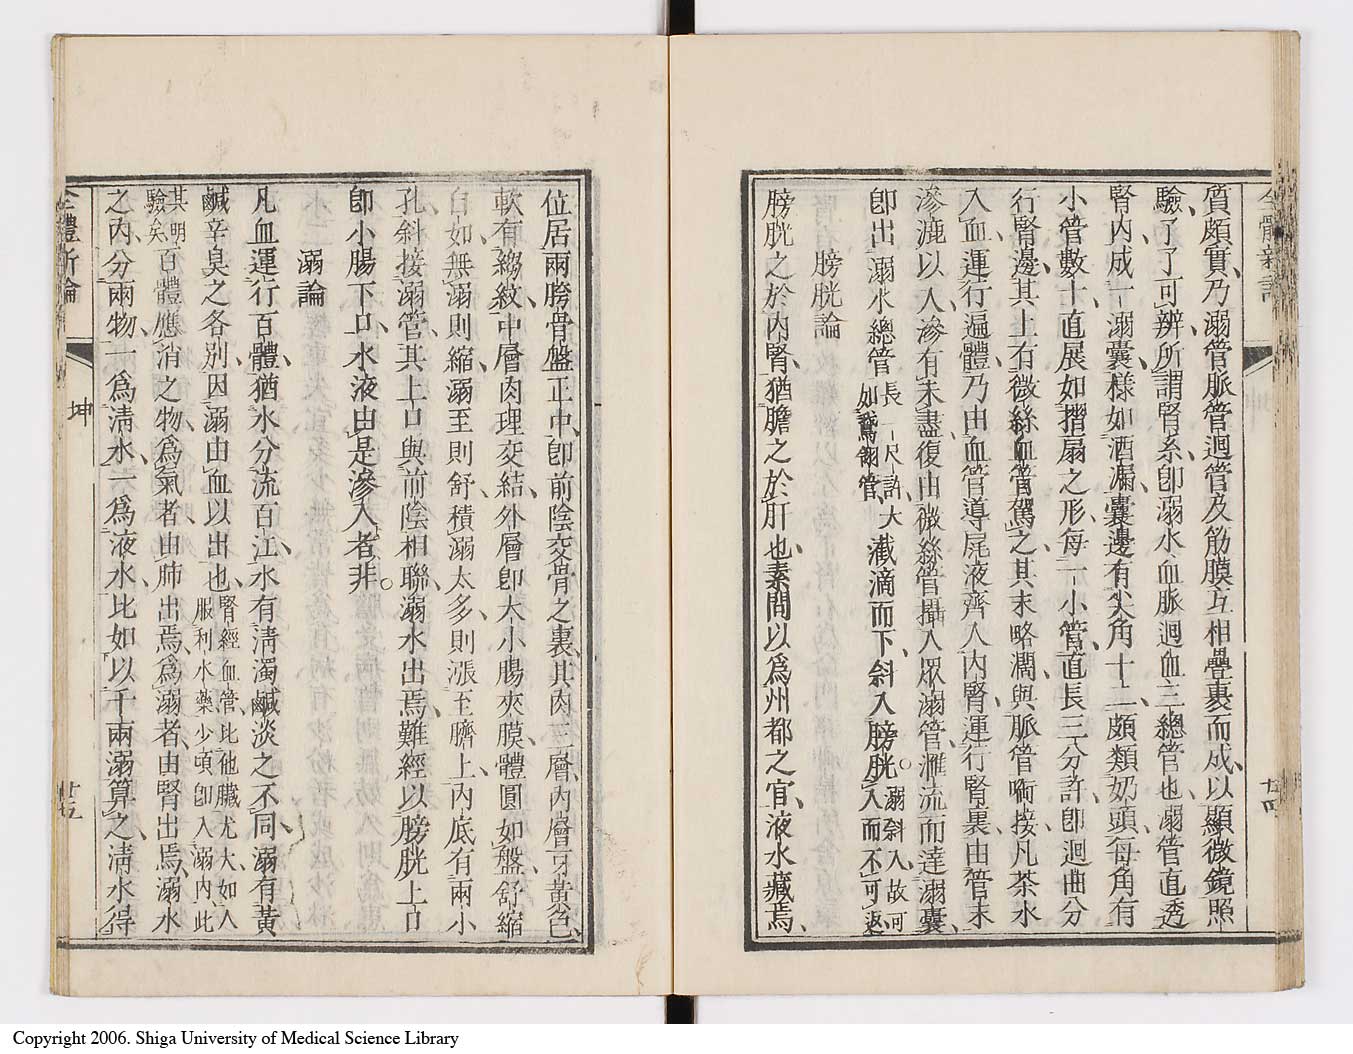 質頗實、乃溺管脈管迴管及筋膜互相疊裹而成、以顯微鏡照
驗、了了可辨、所謂腎系、卽溺水血脈迴血三總管也、溺管直透
腎內、成一溺囊、樣如酒漏、囊邊有尖角十二、頗類奶頭、每角有
小管數十、直展如摺扇之形、每一小管、直長三分許、卽迴曲分
行腎邊、其上有微絲血管駕之、其末略濶、與脈管啣接、凡茶水
入血、運行遍體、乃由血管導尿液齊入內腎、運行腎裏、由管末
滲漉以入、滲有未盡、復由微絲管攝入、眾溺管滙流而達溺囊、
卽出溺水總管長一尺許、大如鵞翎管、瀐滴而下、斜入膀胱。溺斜入、故可入而不可返
膀胱論
膀胱之於內腎、猶膽之於肝也、素問以爲州都之官、液水藏焉、
位居兩胯骨盤正中、卽前陰交骨之裏、其肉三層、內層牙黃色、
軟有縐紋、中層肉理交結、外層卽大小腸夾膜、體圓如盤、舒縮
自如、無溺則縮、溺至則舒、積溺太多、則漲至臍上、內底有兩小
孔、斜接溺管、其上口與前陰相聯、溺水出焉、難經以膀胱上口
卽小腸下口、水液由是滲入者非。
溺論
凡血運行百體、猶水分流百江、水有淸濁鹹淡之不同、溺有黃
鹹辛臭之各別、因溺由血以出也、腎經血管、比他臟尤大、如人服利水藥、少頃卽入溺內、此
其明驗矣、百體應消之物、爲氣者由肺出焉、爲溺者由腎出焉、溺水
之內、分兩物、一爲淸水、一爲液水、比如以千兩溺算之、淸水得
全體新論
坤
廿四
全體新論
坤
廿五
Copyright 2006. Shiga University of Medical Science Library